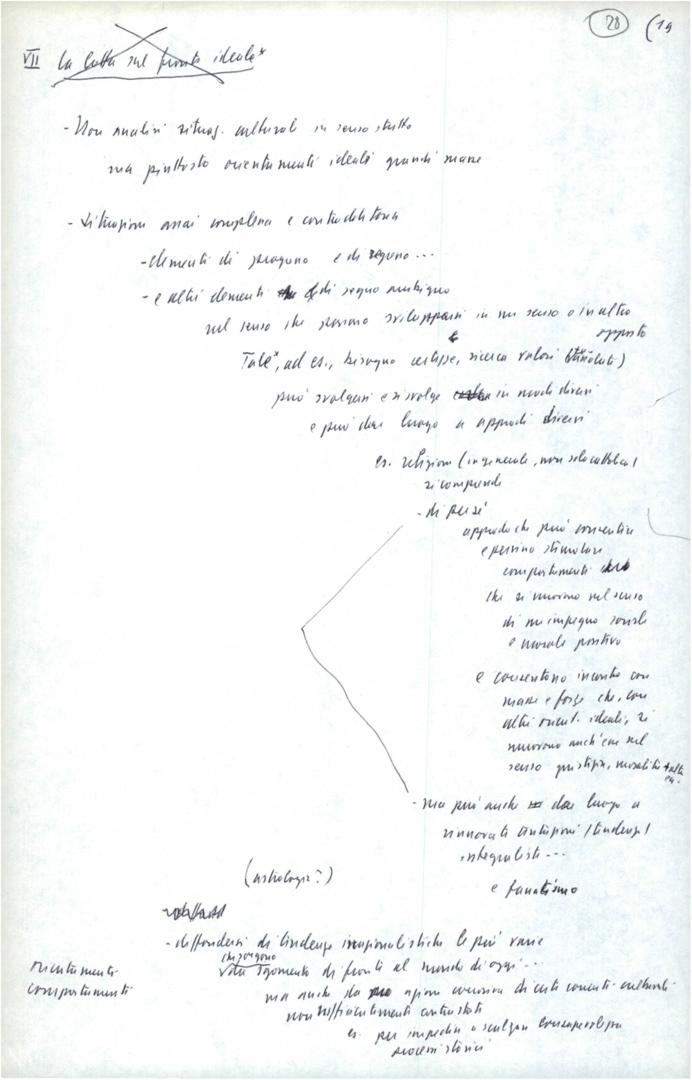 28 (19
VII La lotta sul fronte ideale*
- Non analisi situaz. culturale in senso stretto
ma piuttosto orientamenti ideali grandi masse
- Situazione assai complessa e contraddittoria
- elementi di progresso e di regresso...
- e altri elementi di segno ambiguo
nel senso che possono svilupparsi in un senso o in altro
opposto
Tale*, ad es., bisogno certezze, ricerca valori
può svolgersi e si svolge in modi diversi
e può dar luogo a approdi diversi
es. religione (in generale, non solo cattolica)
si comprende
- di per sé
approdo che può consentire
e persino stimolare
comportamenti
che si muovono nel senso
di un impegno sociale
e morale positivo
e consentono incontro con
masse e forze che, con
altri orient. ideali, si
muovono anch'esse nel
senso giustizia, moralità
- ma può anche dar luogo a
rinnovate tentazioni (tendenze)
integraliste...
(astrologia?)
e fanatismo
- diffondersi di tendenze irrazionalistiche le più varie
che sorgono
sgomento di fronte al mondo di oggi...
orientamenti
comportamenti
ma anche da azione corrosiva di certe correnti culturali
non sufficientemente contrastate
es. per impedire a svolgere consapevolezza
processi storici